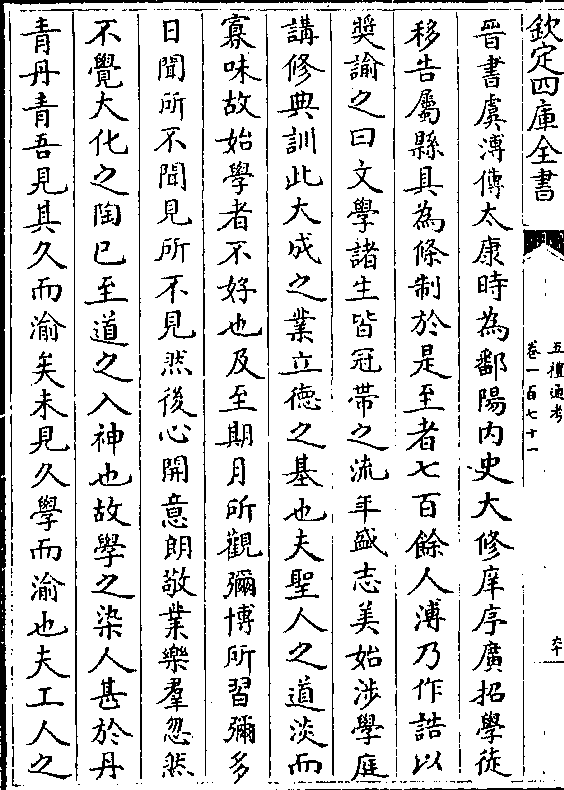 欽定四庫全書
五禮通考
卷一百七十一
六十
晉書虞溥傳太康時為鄱陽内史大修庠序廣招學徒
移告屬縣具為條制於是至者七百餘人溥乃作誥以
奬諭之曰文學諸生皆冠帶之流年盛志美始涉學庭
講修典訓此大成之業立德之基也夫聖人之道淡而
寡味故始學者不好也及至期月所觀彌博所習彌多
日聞所不聞見所不見然後心開意朗敬業樂羣忽然
不覺大化之陶已至道之入神也故學之染人甚於丹
青丹青吾見其久而渝矣未見久學而渝也夫工人之